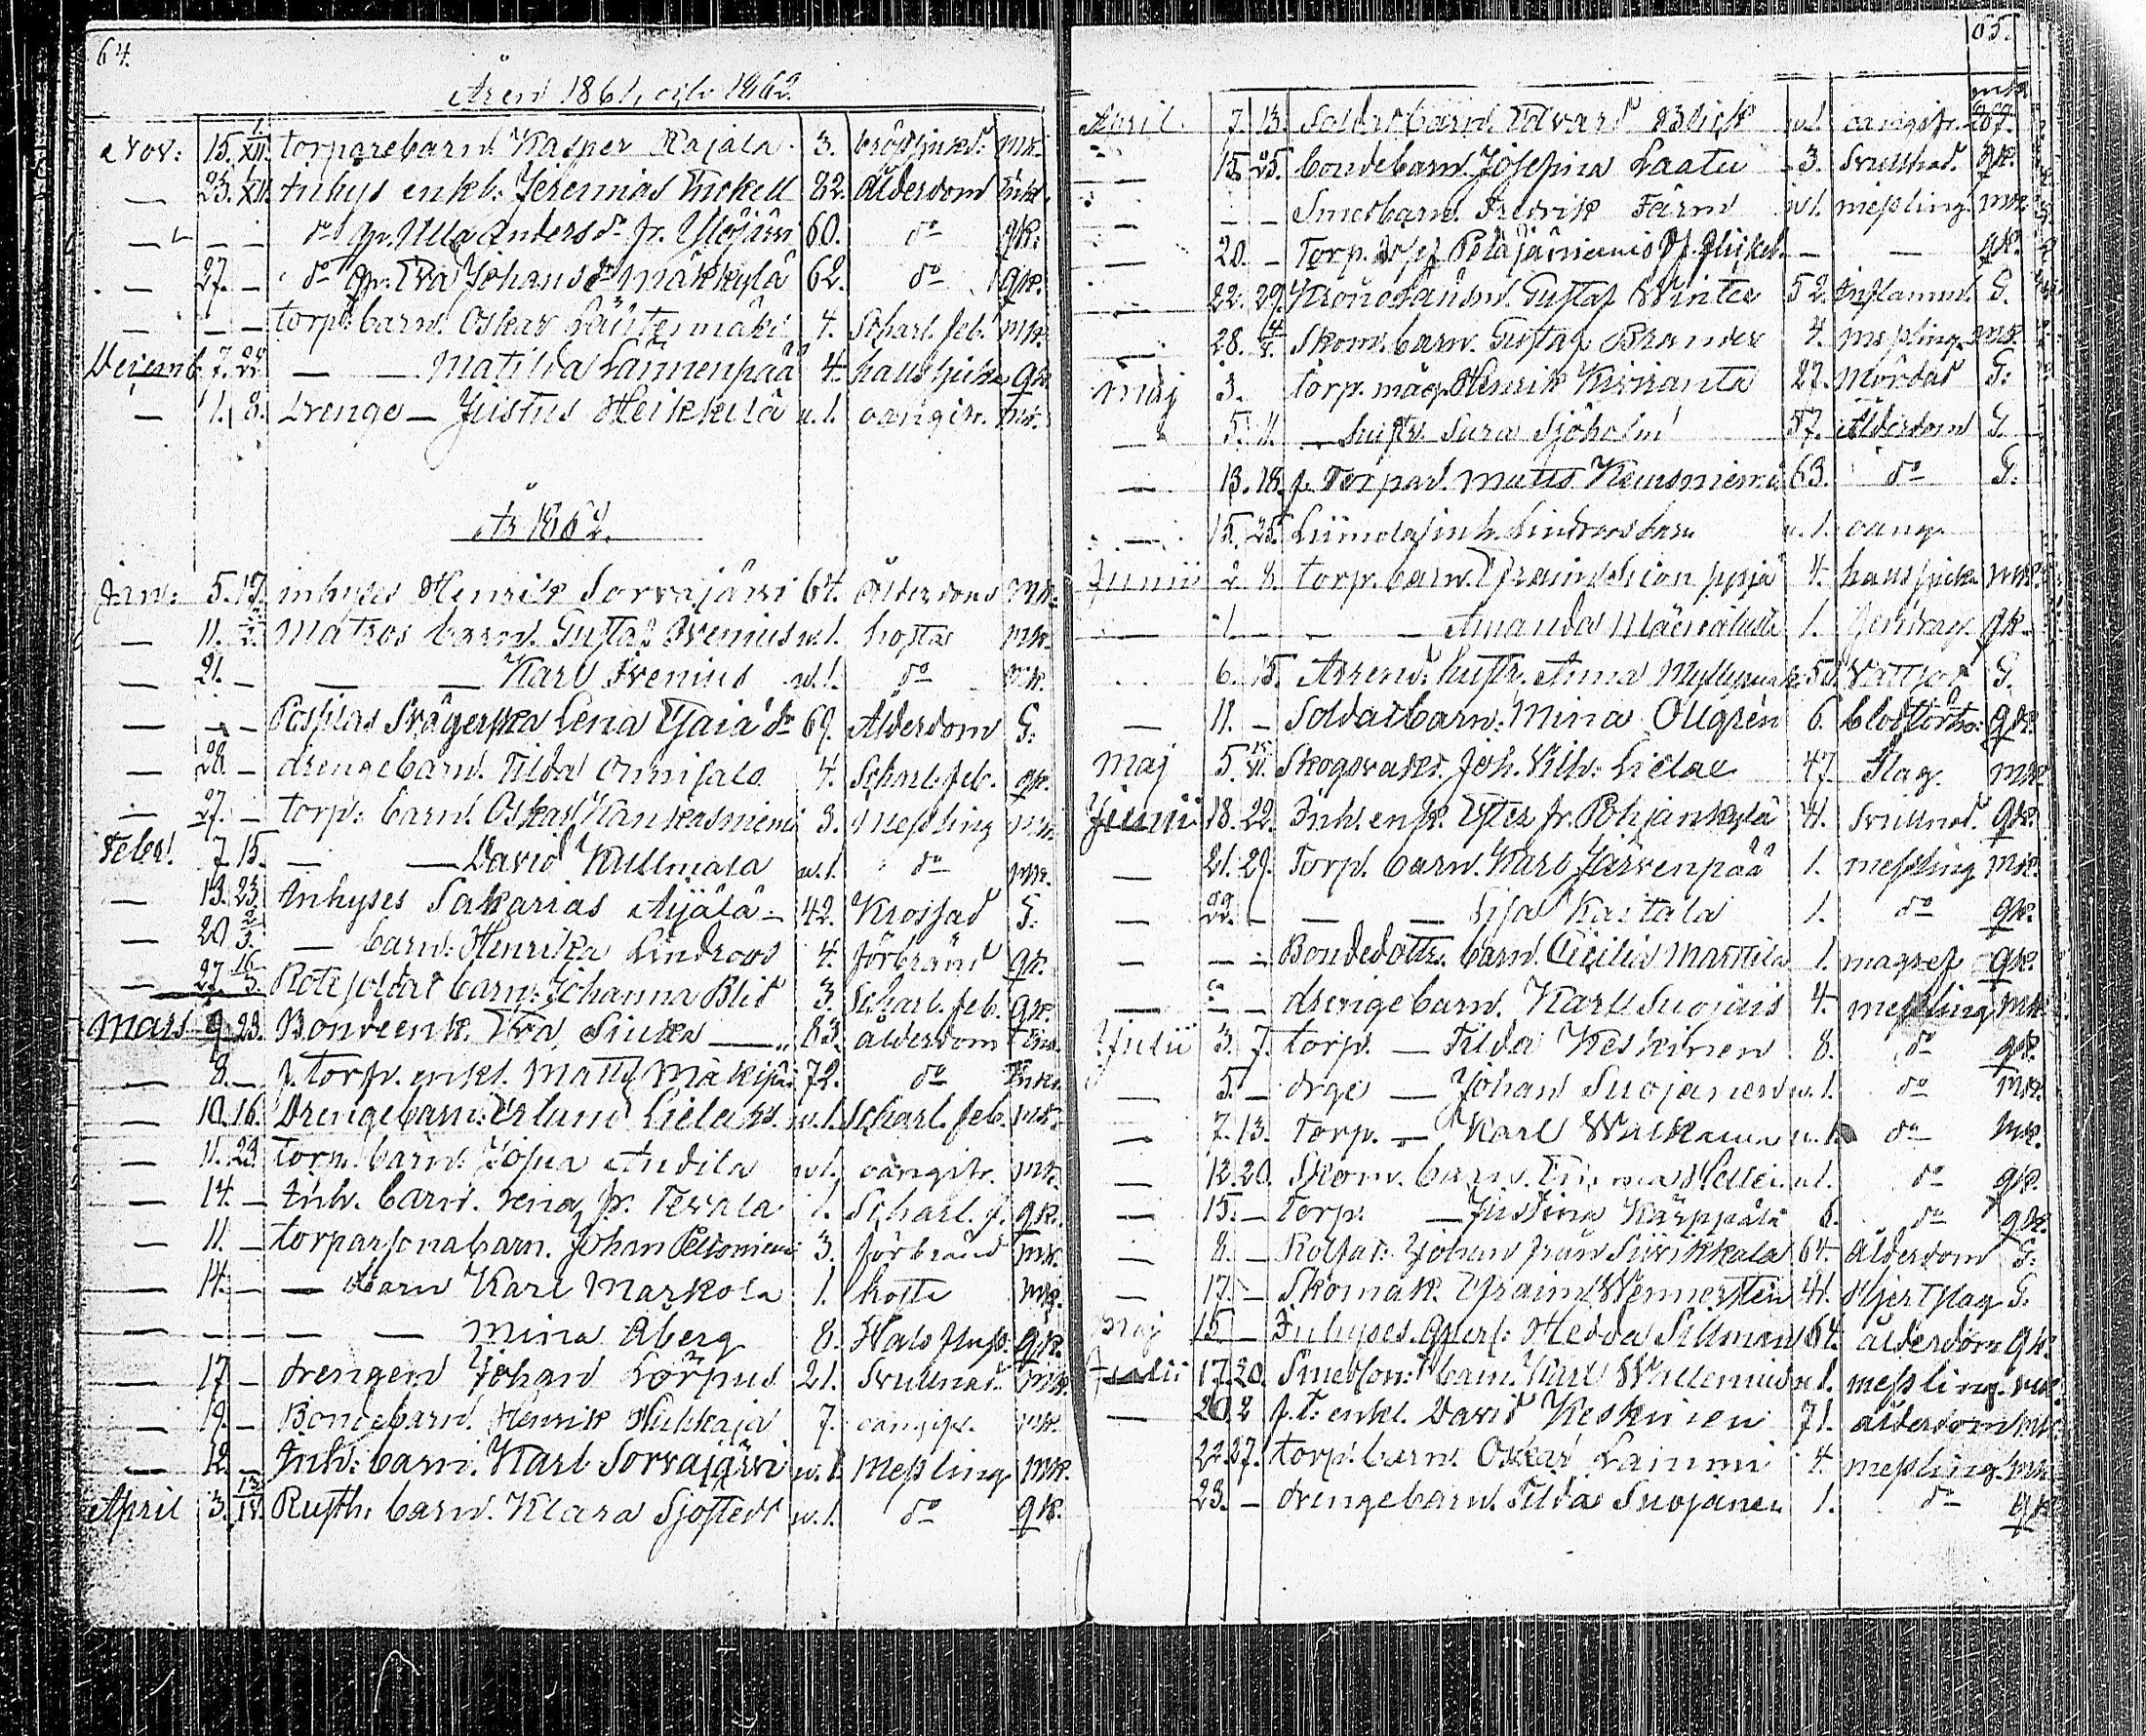 64.
Åren 1861, och 1862.
Nov: 15. 1/XII. torparebarn. Kasper Rajala. 3. bröstsjukd: mk.
— 23. XII. Inhys enkl: Jeremias Fickell 82. Ålderdom Enkl.
— — — do qv. Ulla Anders dr fr. Ylöjärvi 60. do qk:
— 27. — do qv: Eva Johans dr Mäkkylä 62. do qk.
— — — torp: barn. Oskar 4. Scharl. feb. mk.
Decemb. 7. — — Matilda Lännenpää 4. halssjuka qk.
— 1. 8. Drenge — Justus Heikkilä u.1. oangifn. mk.
År 1862.
Jan: 5. inhyses Henrik Sorvajärvi 64. Ålderdom mk.
— 11. Matros barn. Gustaf Irenius u.1. hosta mk.
— 21. — — — Karl Irenius u.1. do mk.
— — — Svägerska Lena dr 69. Ålderdom G:
— — drengebarn. Tilda Onnisalo 4. Scharl. feb. qk.
— 27. — torp: barn. Oskar Kankasniemi 3. Messling mk.
Febr. 7. 15. — — David Kullmala u.1. do mk.
— 13. 23. Inhyses Sakarias Äijälä — 42. Krossad G:
— 20. 2/3. — barn: Henrika Lindroos 4. förbränd qk.
— 27. 16/3. Rotesoldat barn: Johanna Blid 3. Scharl. feb. qk.
Mars 9. 23. Bondeenk. Eva — 83. ålderdom Enk.
— 8. — f. torp. enkl. Matts Mäkipää 72. do Enkl.
— 10. 16. Drengebarn: Erland u.1. Scharl. feb. mk.
— 11. 23. torp. barn: Josua Andila u.1. oangifn. mk.
— 14. — Inh. barn. Lena fr. Tevala 1. Scharl. f. qk.
— 11. — torparsonabarn. Johan Peltoniemi 3. förbränd mk.
— 14. — — Barn Karl Markola 1. hosta mk.
— — — — — Mina Åberg 8. qk.
— 17 — drengen Johan Lörpus 21. Svullnad.
— 19. — Bondebarn. Henrik Hukkaja 7. oangifn. mk.
— 12. — Inh: barn. Karl Sorvajärvi u.1. Messling mk.
April 3. 13/IV. Rusth: barn. Klara Sjöstedt u.1. do qk.
65.
April. 7. 13. Soldatbarn. Edvard Blick u.1. oangifn.
— 15. 25. bondebarn. Josefina Laatu 3. Svullnad. qk.
— — — Smedbarn. Fredrik Färm u.1. messling. mk.
— 20. — Torp. — — qk.
22. 29. Kronolänsm. Gustaf Winter 52. Inflamm. G.
— 28. 4/5. Skom. barn. Gustaf Brander 4. messling. mk.
Maj 3. torp. måg. Henrik Kiviranta 27. Mördad G:
— 5. 11. — hustr. Sara Sjöholm 57. Ålderdom G.
— 13. 18. f. Torpar. Matts 63. do G.
— 15. 25. Lindroos barn u.1. oang.
Junii 2. 8. torp. barn. Efraim 4. halssjuka mk.
— 1. — — — Amanda 1. qk.
6. 15. Arrend: hustr. Anna G.
— 11. — Soldatbarn: Mina Ollgren 6. qk.
Maj 5. Skogsvakt. Joh. Vilh. 47 Slag. mk.
Junii 18. 22. Inh. enk. Ester fr. Pohjankylä 41. Svullnad. qk.
— 21. 29. Torp. barn. Karl Järvenpää 1. messling mk.
— 22. — — — Lisa Kaitala 1. do qk.
— — — Bondedottr. barn. Cecilia Marttila 1. magref qk.
— — — drengebarn. Karl Suojais 4. messling mk.
Julii 3. 7. torp. — Tilda Keskinen 8. do qk.
— 5. — drge — Johan Suojanen u.1. do mk.
— 7. 13. Torp. — Karl u.1. do mk.
— 12. 20. Skom. barn. u.1. do qk.
— 15. — Torp. — Justina Kärppälä 6. do qk.
— 8. — Johan från Siivikkala 64. ålderdom G.
— 17. — Skomak. Efraim Wennersten 41. Hjertslag G.
Maj 15 — Inhyses. qverf: Hedda Sillman 64. ålderdom qk.
Julii 17. 20. Smedson: barn. Karl u.1. messling. mk.
— 20. f. T: enkl. David Keskinen 71. ålderdom
22. 27. torp. barn. Oskar Lammi 4. messling. mk.
23. — drengebarn. Tilda Suojanen 1. do qk